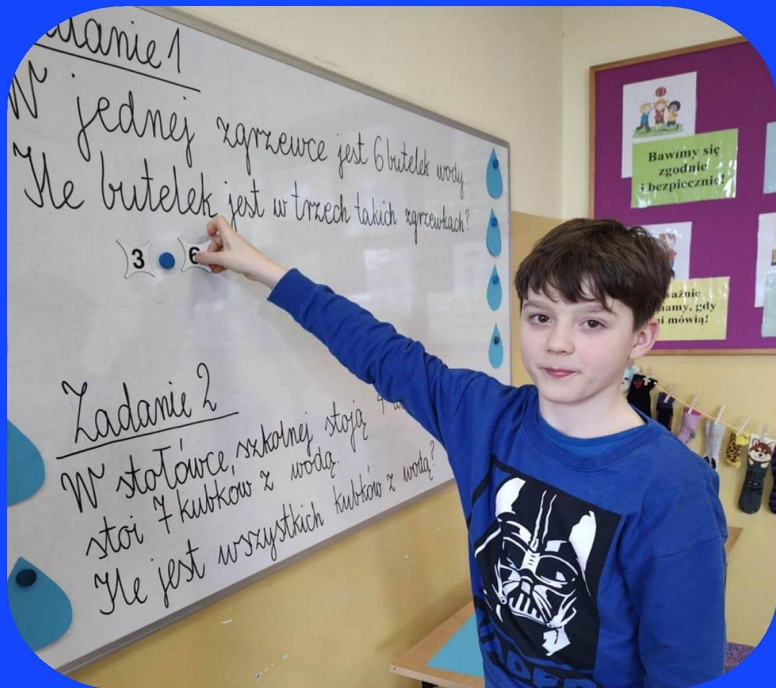 Zadanie 1
W jednej zgrzewce jest 6 butelek wody.
Ile butelek jest w trzech takich zgrzewkach?
3 6
Zadanie 2
W stołówce szkolnej stoją 4
stoi 7 kubków z wodą.
Ile jest wszystkich kubków z wodą?
Bawimy się
zgodnie
i bezpiecznie!
gdy
mówią!
VADER